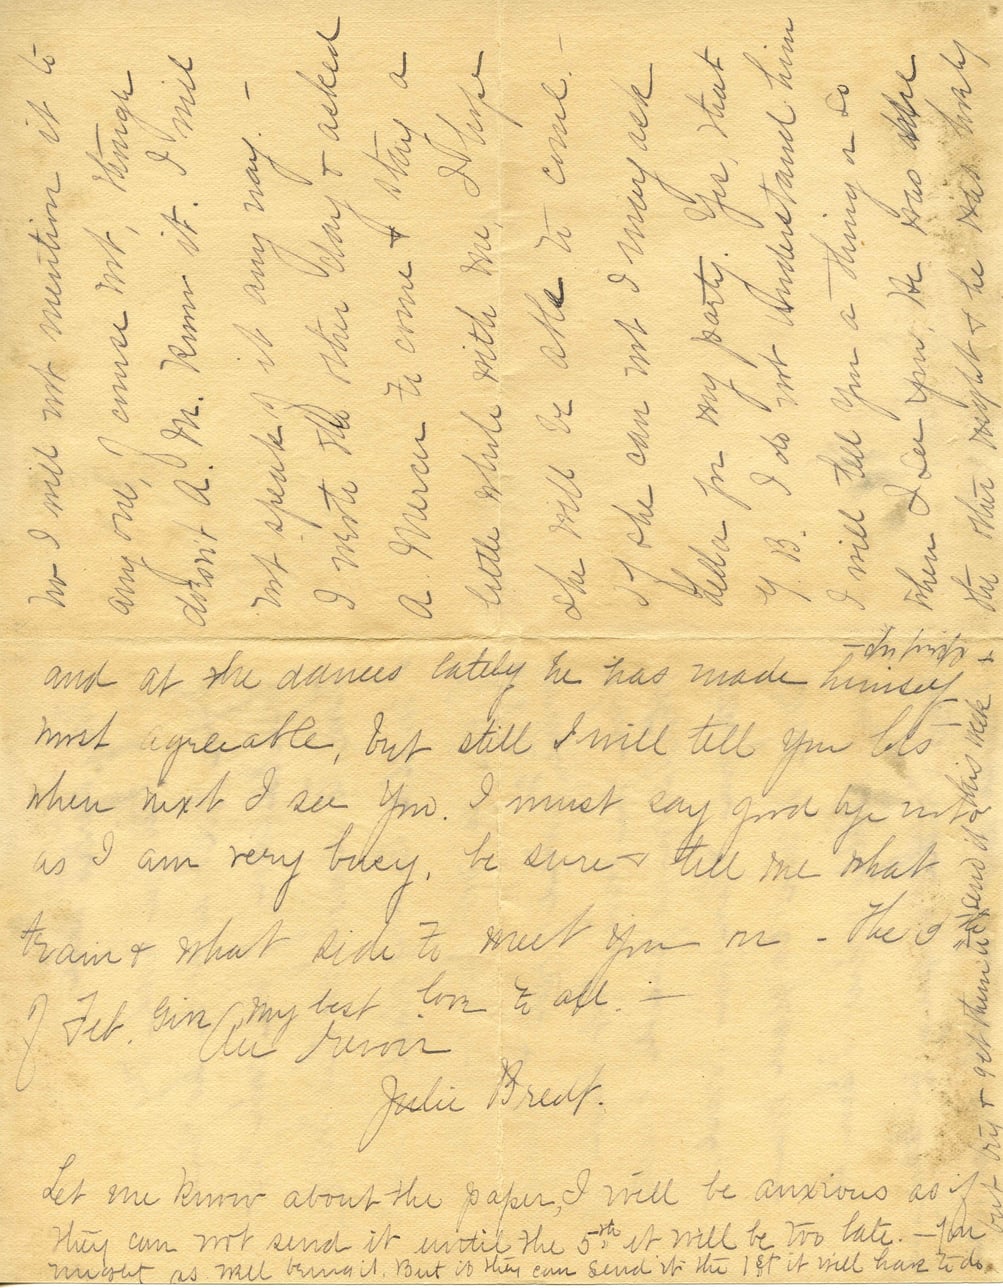 no I will not mention it to
any one, of course not, though
doesn't A. M. know it. I will
not speak of it any way. —
I wrote the other day & asked
A. Mercer to come & stay a
little while with me, I hope
she will be able to come. —
If she can not I may ask
Bella for my party. Yes, that
Y. B. I do not understand him
I will tell you a thing or so
when I see you, He was here
the other night & he was lovely
and at the dances lately he has made himself
most agreeable, but still I will tell you lots
when next I see you. I must say good bye now
as I am very busy, be sure & tell me what
train & what side to meet you on - the 2
of Feb. Give my best love to all. —
Au revoir
Julie Bredt.
Let me know about the paper, I will be anxious as if
they can not send it until the 5th it will be too late. — You
might as well bring it. But if they can send it the 1st it will have to do.
but try & get them to send it this week